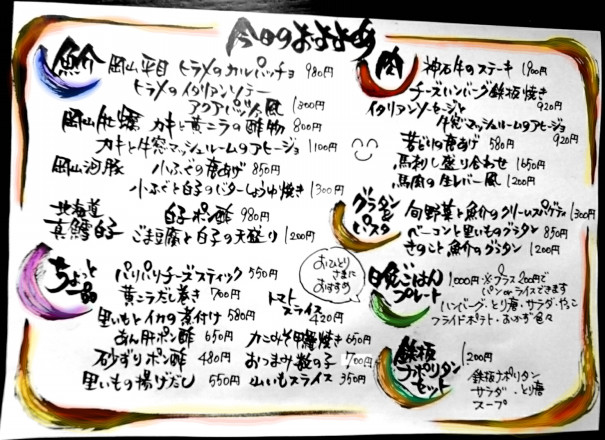 今日のおすすめ
魚介
岡山平目 ヒラメのカルパッチョ 980円
ヒラメのイタリアンソテー
アクアパッツァ風 1300円
岡山牡蠣 カキと黄ニラの酢物 800円
カキと牛窓マッシュルームのアヒージョ 1100円
岡山河豚 小ふぐの唐あげ 850円
小ふぐと白子のバターしょうゆ焼き 1300円
北海道
真鱈白子 白子ポン酢 980円
ごま豆腐と白子の天盛り 1200円
ちょっと一品
パリパリチーズスティック 550円
黄ニラだし巻き 700円
里いもとイカの煮付け 580円
あん肝ポン酢 650円
砂ずりポン酢 480円
里いもの揚げだし 550円
おひとり
さまに
おすすめ
トマト
スライス
420円
カニみそ甲羅焼き 650円
おつまみ数の子 700円
山いもスライス 350円
肉
神石牛のステーキ 1900円
チーズハンバーグ鉄板焼き
920円
イタリアンソーセージと
牛窓マッシュルームのアヒージョ
920円
若どりの唐あげ 580円
馬刺し盛り合わせ 1650円
馬肉の生レバー風 1200円
グラタン
&
パスタ
旬野菜と魚介のクリームスパゲティ 1300円
ベーコンと里いものグラタン 850円
きのこと魚介グラタン 1200円
晩ごはん
プレート
1000円 ※プラス200円で
パン or ライスできます
ハンバーグ・とり唐・サラダ・やっこ
フライドポテト・おかず色々
鉄板
ナポリタン
セット
1200円
鉄板ナポリタン
サラダ・とり唐
スープ